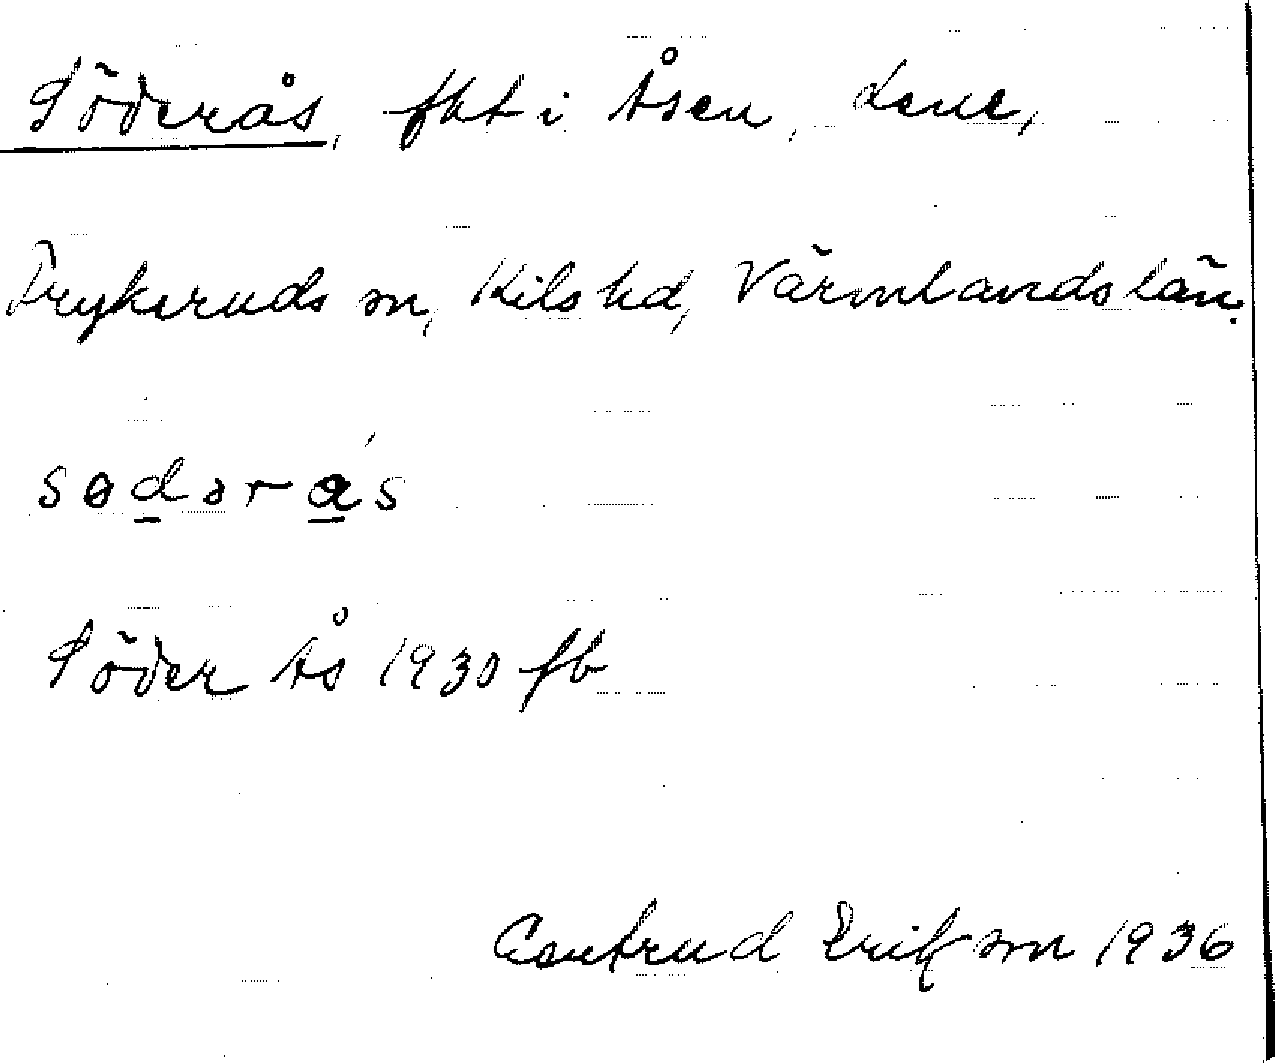 Söderås, fht i Åsen, Lene,
Frykeruds sn, Kils hd, Värmlands län.
sødərás
Söder Ås 1930 fb
Gertrud Erikson 1936